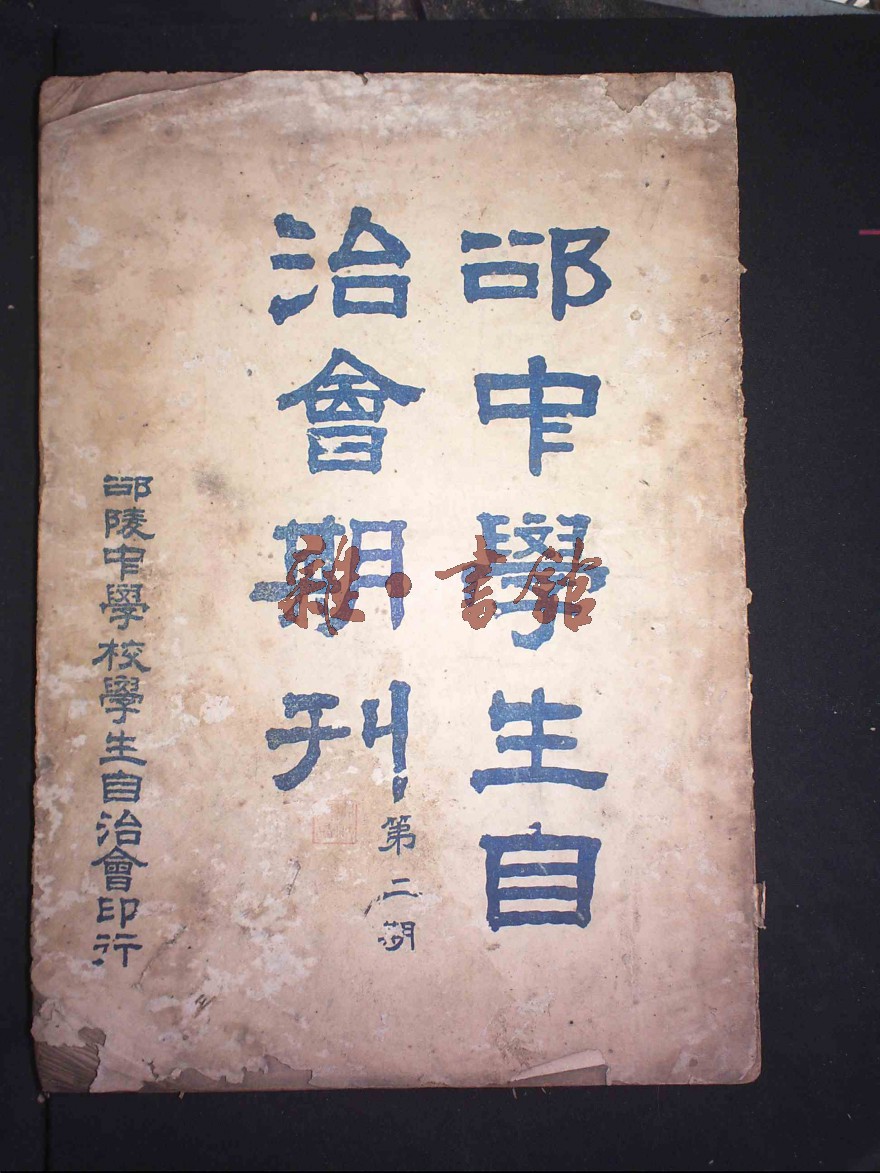 邵中學生自
治會期刊
第二期
邵陵中學校學生自治會印行
雜·書館